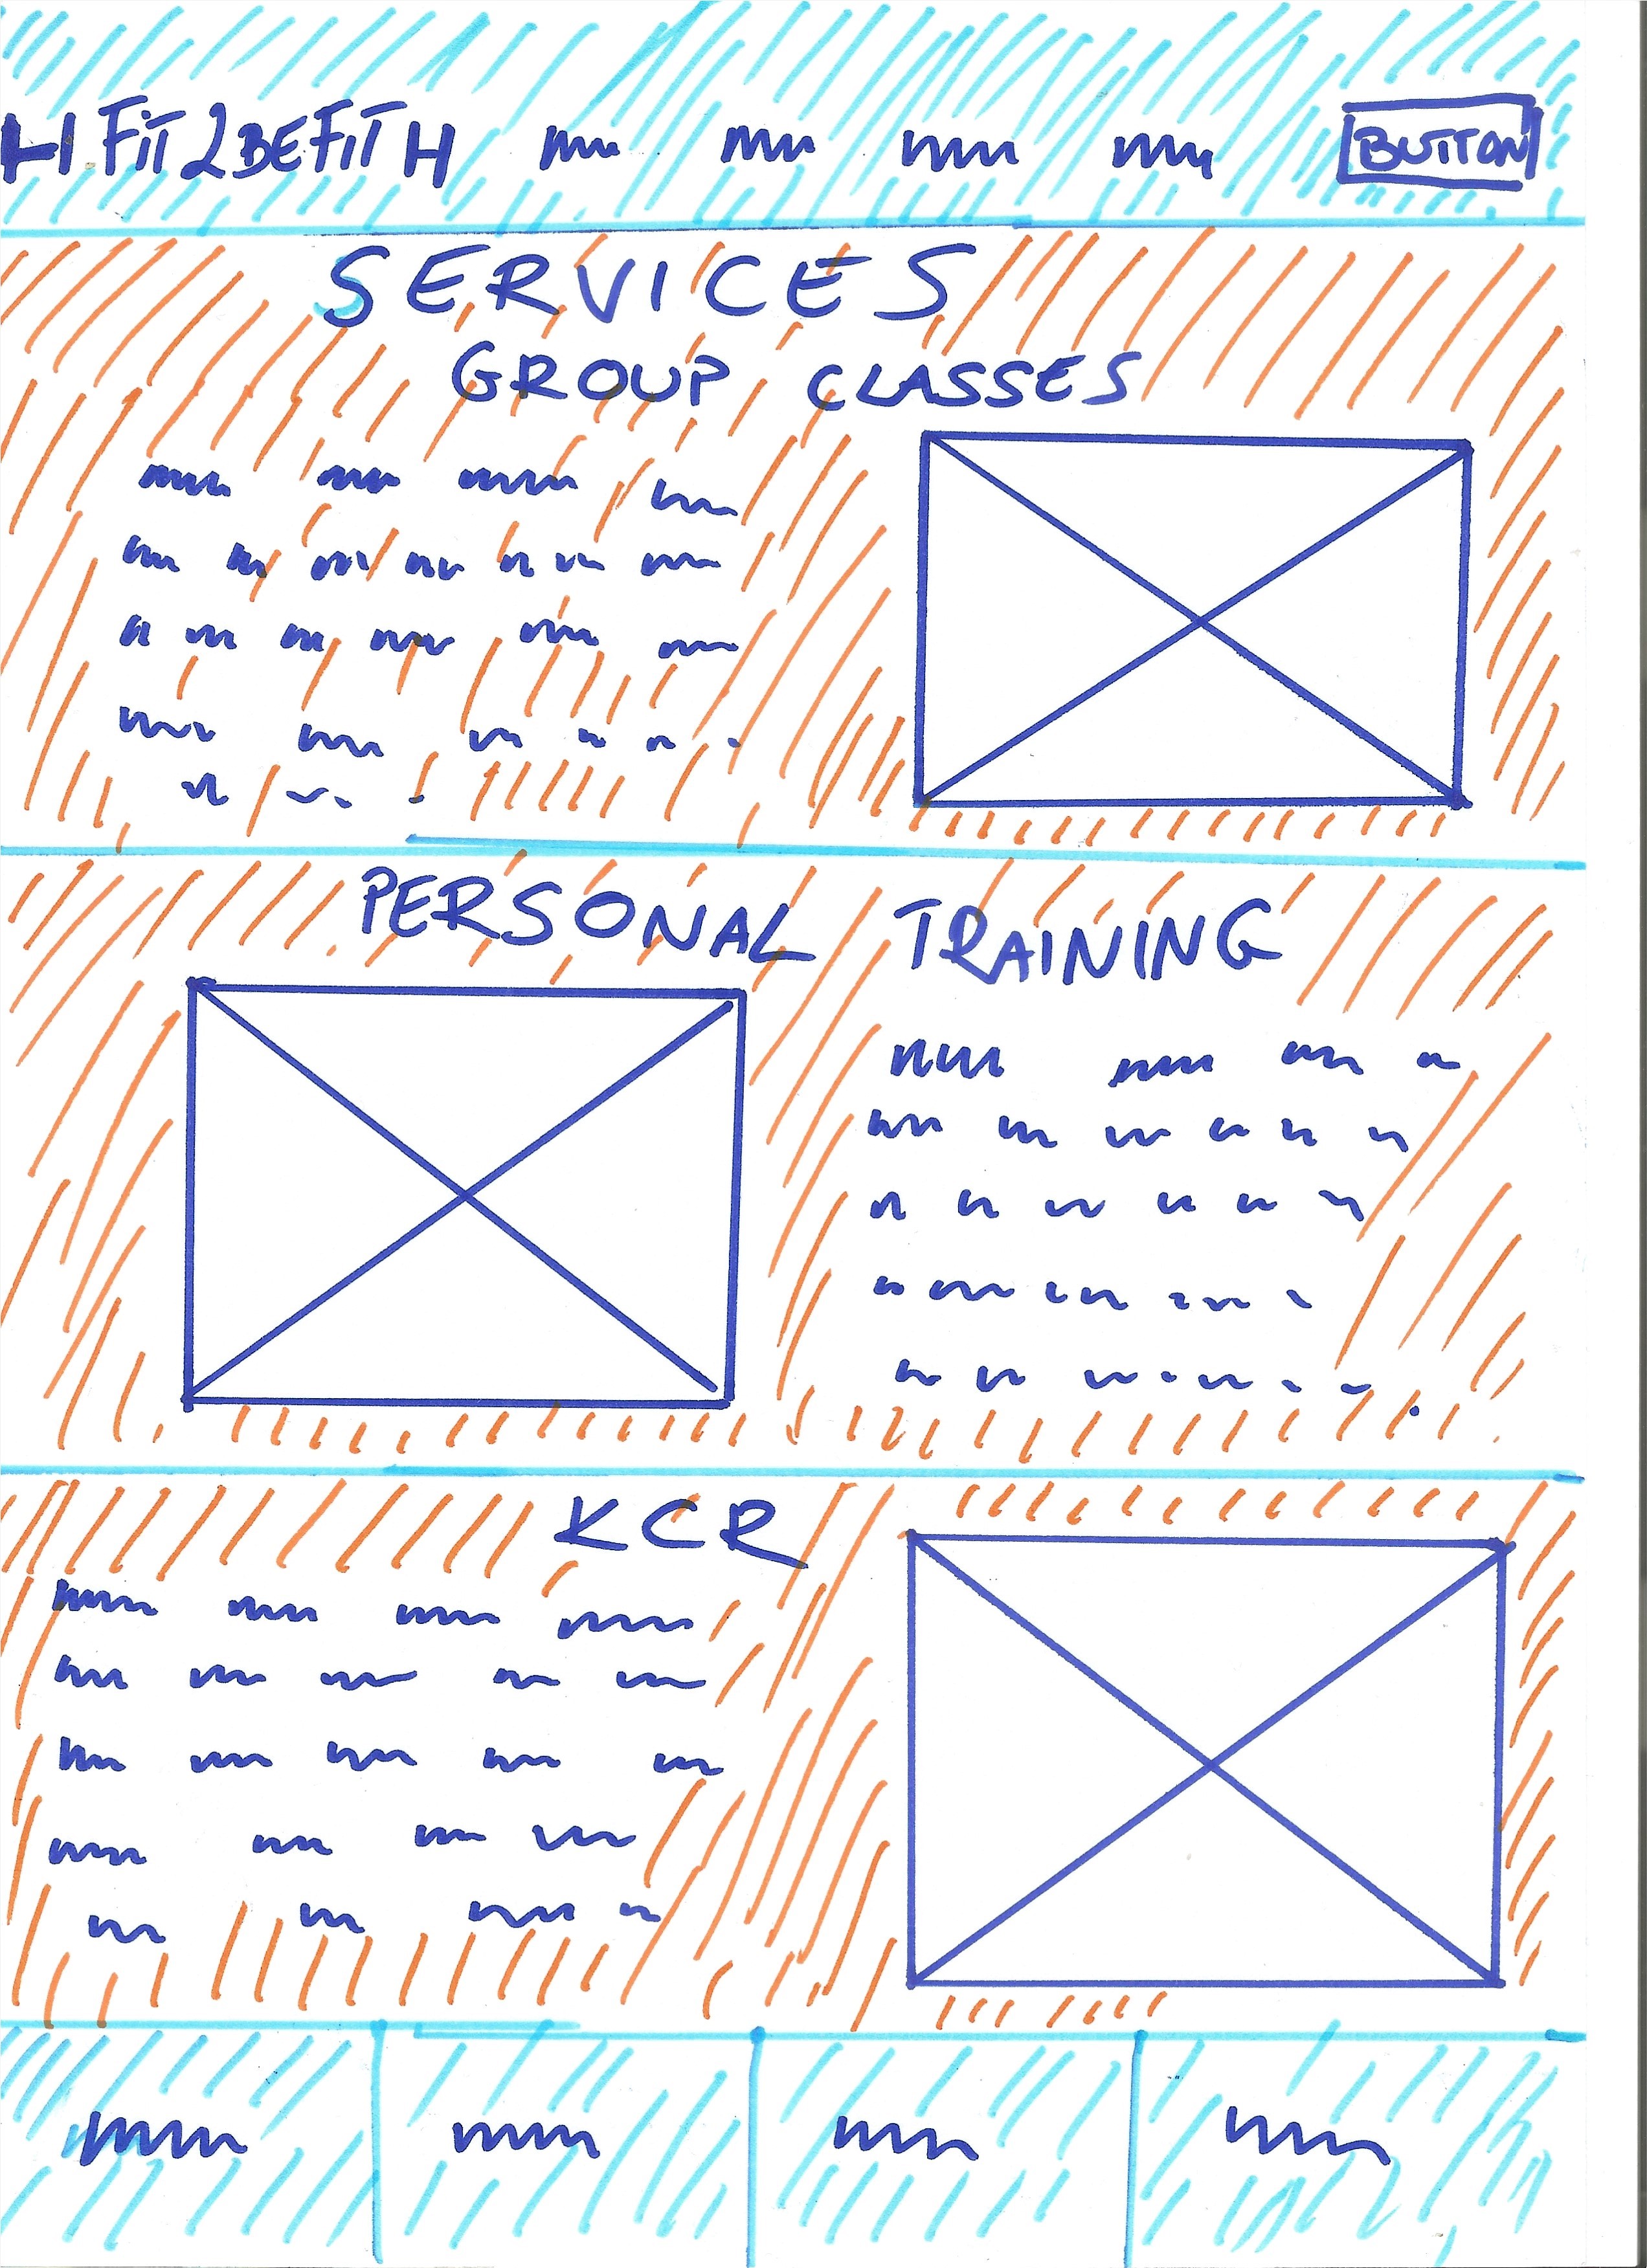 FIT2BEFIT BUTTON
SERVICES
GROUP CLASSES
PERSONAL TRAINING
KCR